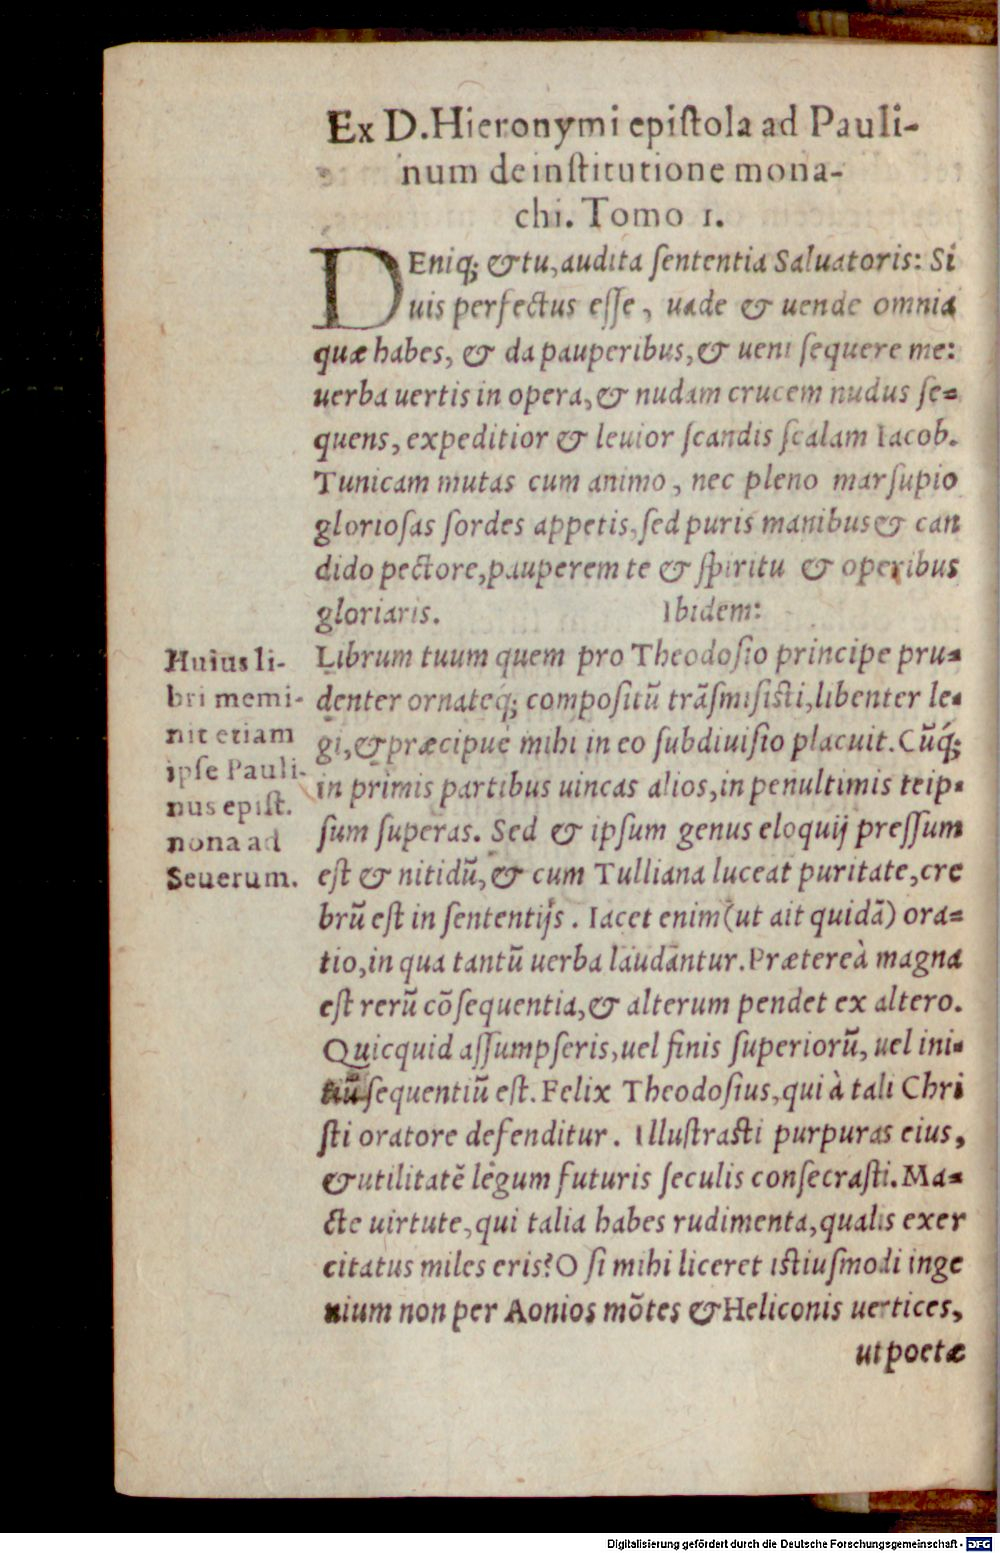 Ex D. Hieronymi epiſtola ad Pauli-
num de inſtitutione mona-
chi. Tomo 1.
DEniq; & tu, audita ſententia Saluatoris: Si
uis perfectus eſſe, uade & uende omnia
quæ habes, & da pauperibus, & ueni ſequere me:
uerba uertis in opera, & nudam crucem nudus ſe=
quens, expeditior & leuior ſcandis ſcalam Iacob.
Tunicam mutas cum animo, nec pleno marſupio
glorioſas ſordes appetis, ſed puris manibus & can
dido pectore, pauperem te & ſpiritu & operibus
gloriaris. Ibidem:
Librum tuum quem pro Theodoſio principe pru=
denter ornateq; compoſitũ trãſmiſiſti, libenter le=
gi, & præcipuè mihi in eo ſubdiuiſio placuit. Cũq́;
in primis partibus uincas alios, in penultimis teip=
ſum ſuperas. Sed & ipſum genus eloquij preſſum
eſt & nitidũ, & cum Tulliana luceat puritate, cre
brũ eſt in ſententijs. Iacet enim (ut ait quidã) ora=
tio, in qua tantũ uerba laudantur. Prætereà magna
eſt rerũ cõſequentia, & alterum pendet ex altero.
Quicquid aſſumpſeris, uel finis ſuperiorũ, uel ini=
tiũ ſequentiũ eſt. Felix Theodoſius, qui à tali Chri
ſti oratore defenditur. Illuſtraſti purpuras eius,
& utilitatẽ legum futuris ſeculis conſecraſti. Ma=
cte uirtute, qui talia habes rudimenta, qualis exer
citatus miles eris? O ſi mihi liceret iſtiuſmodi inge
nium non per Aonios mõtes & Heliconis uertices,
ut poetæ
Huius li-
bri memi-
nit etiam
ipſe Pauli-
nus epiſt.
nona ad
Seuerum.
Digitalisierung gefördert durch die Deutsche Forschungsgemeinschaft - DFG